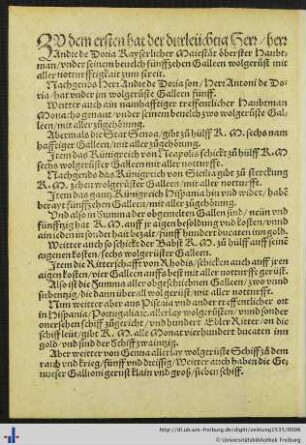 ZV dem ersten hat der durleüchtig Herr / herr
Andre de Doria Kayserlicher Maiestät öberster Haubt-
man / vnder seinem beuelch fünffzehen Galleen wolgerüst mit
aller notturfftigkait zum streit.
Nachgends Herr Andre de Doria son / Herr Antoni de Do-
ria hat vnder jm wolgerüste Galleen fünff.
Weitter auch ain namhafftiger treffenlicher Haubtman
Monacho genant / vnder seinem beuelch zwo wolgerüste Gal-
leen / mit aller zůgehörung.
Abermals die Stat Genoa / gibt zů hülff K. M. sechs nam
hafftiger Galleen / mit aller zůgehörung.
Item das Künigreich von Neapolis schickt zů hülff K. M
sechs wolgerüster Galleen mit aller notturfft.
Nachgends das Künigreich von Sicilia gibt zů sterckung
K. M. zehen wolgerüster Galleen / mit aller notturfft.
Item das gantz Künigreich Hispania hin vnd wider / habē
berayt fünffzehen Galleen / mit aller zůgehörung.
Vnd also in Summa der obgemelten Galleen sind / nein vnd
fünfftzig hat K. M. auff jr aigen besoldung vnd kosten / vnnd
ain jedenen sonder hait bezalt / fünff hundert ducaten inn gold.
Weitter auch so schickt der Babst K. M. zů hülff auff seinē
augenen kosten / sechs wolgerüster Galleen.
Item die Ritterschafft von Rhodis / schicken auch auff jren
aigen kosten / vier Galleen auffs best mit aller notturfft gerüst.
Also ist die Summa aller obgeschribnen Galleen / zwo vnnd
sibentzig / die dann überall wolgerüst / mit aller notturfft.
Nun weitter aber aus Piscaia vnd ander treffenlicher ort
in Hispania / Portugalia zc. allerlay wolgerüsten / vnnd sonder
Schiff zůgericht / vnd hundert Edler Ritter / on die
schiff leüt / gibt K. M. alle Monat vierhundert ducaten inn
gold / vnd sind der Schiff zwaintzig.
Aber weitter von Genua allerlay wolgerüste Schiff zů dem
rauch vnd krieg / fünff vnd dreissig / Weitter auch haben die Ge-
nueser Gallioni gerüst klain vnd groß / siben schiff.
http://dl.ub.uni-freiburg.de/diglit/zeitung1535/0006
© Universitätsbibliothek Freiburg